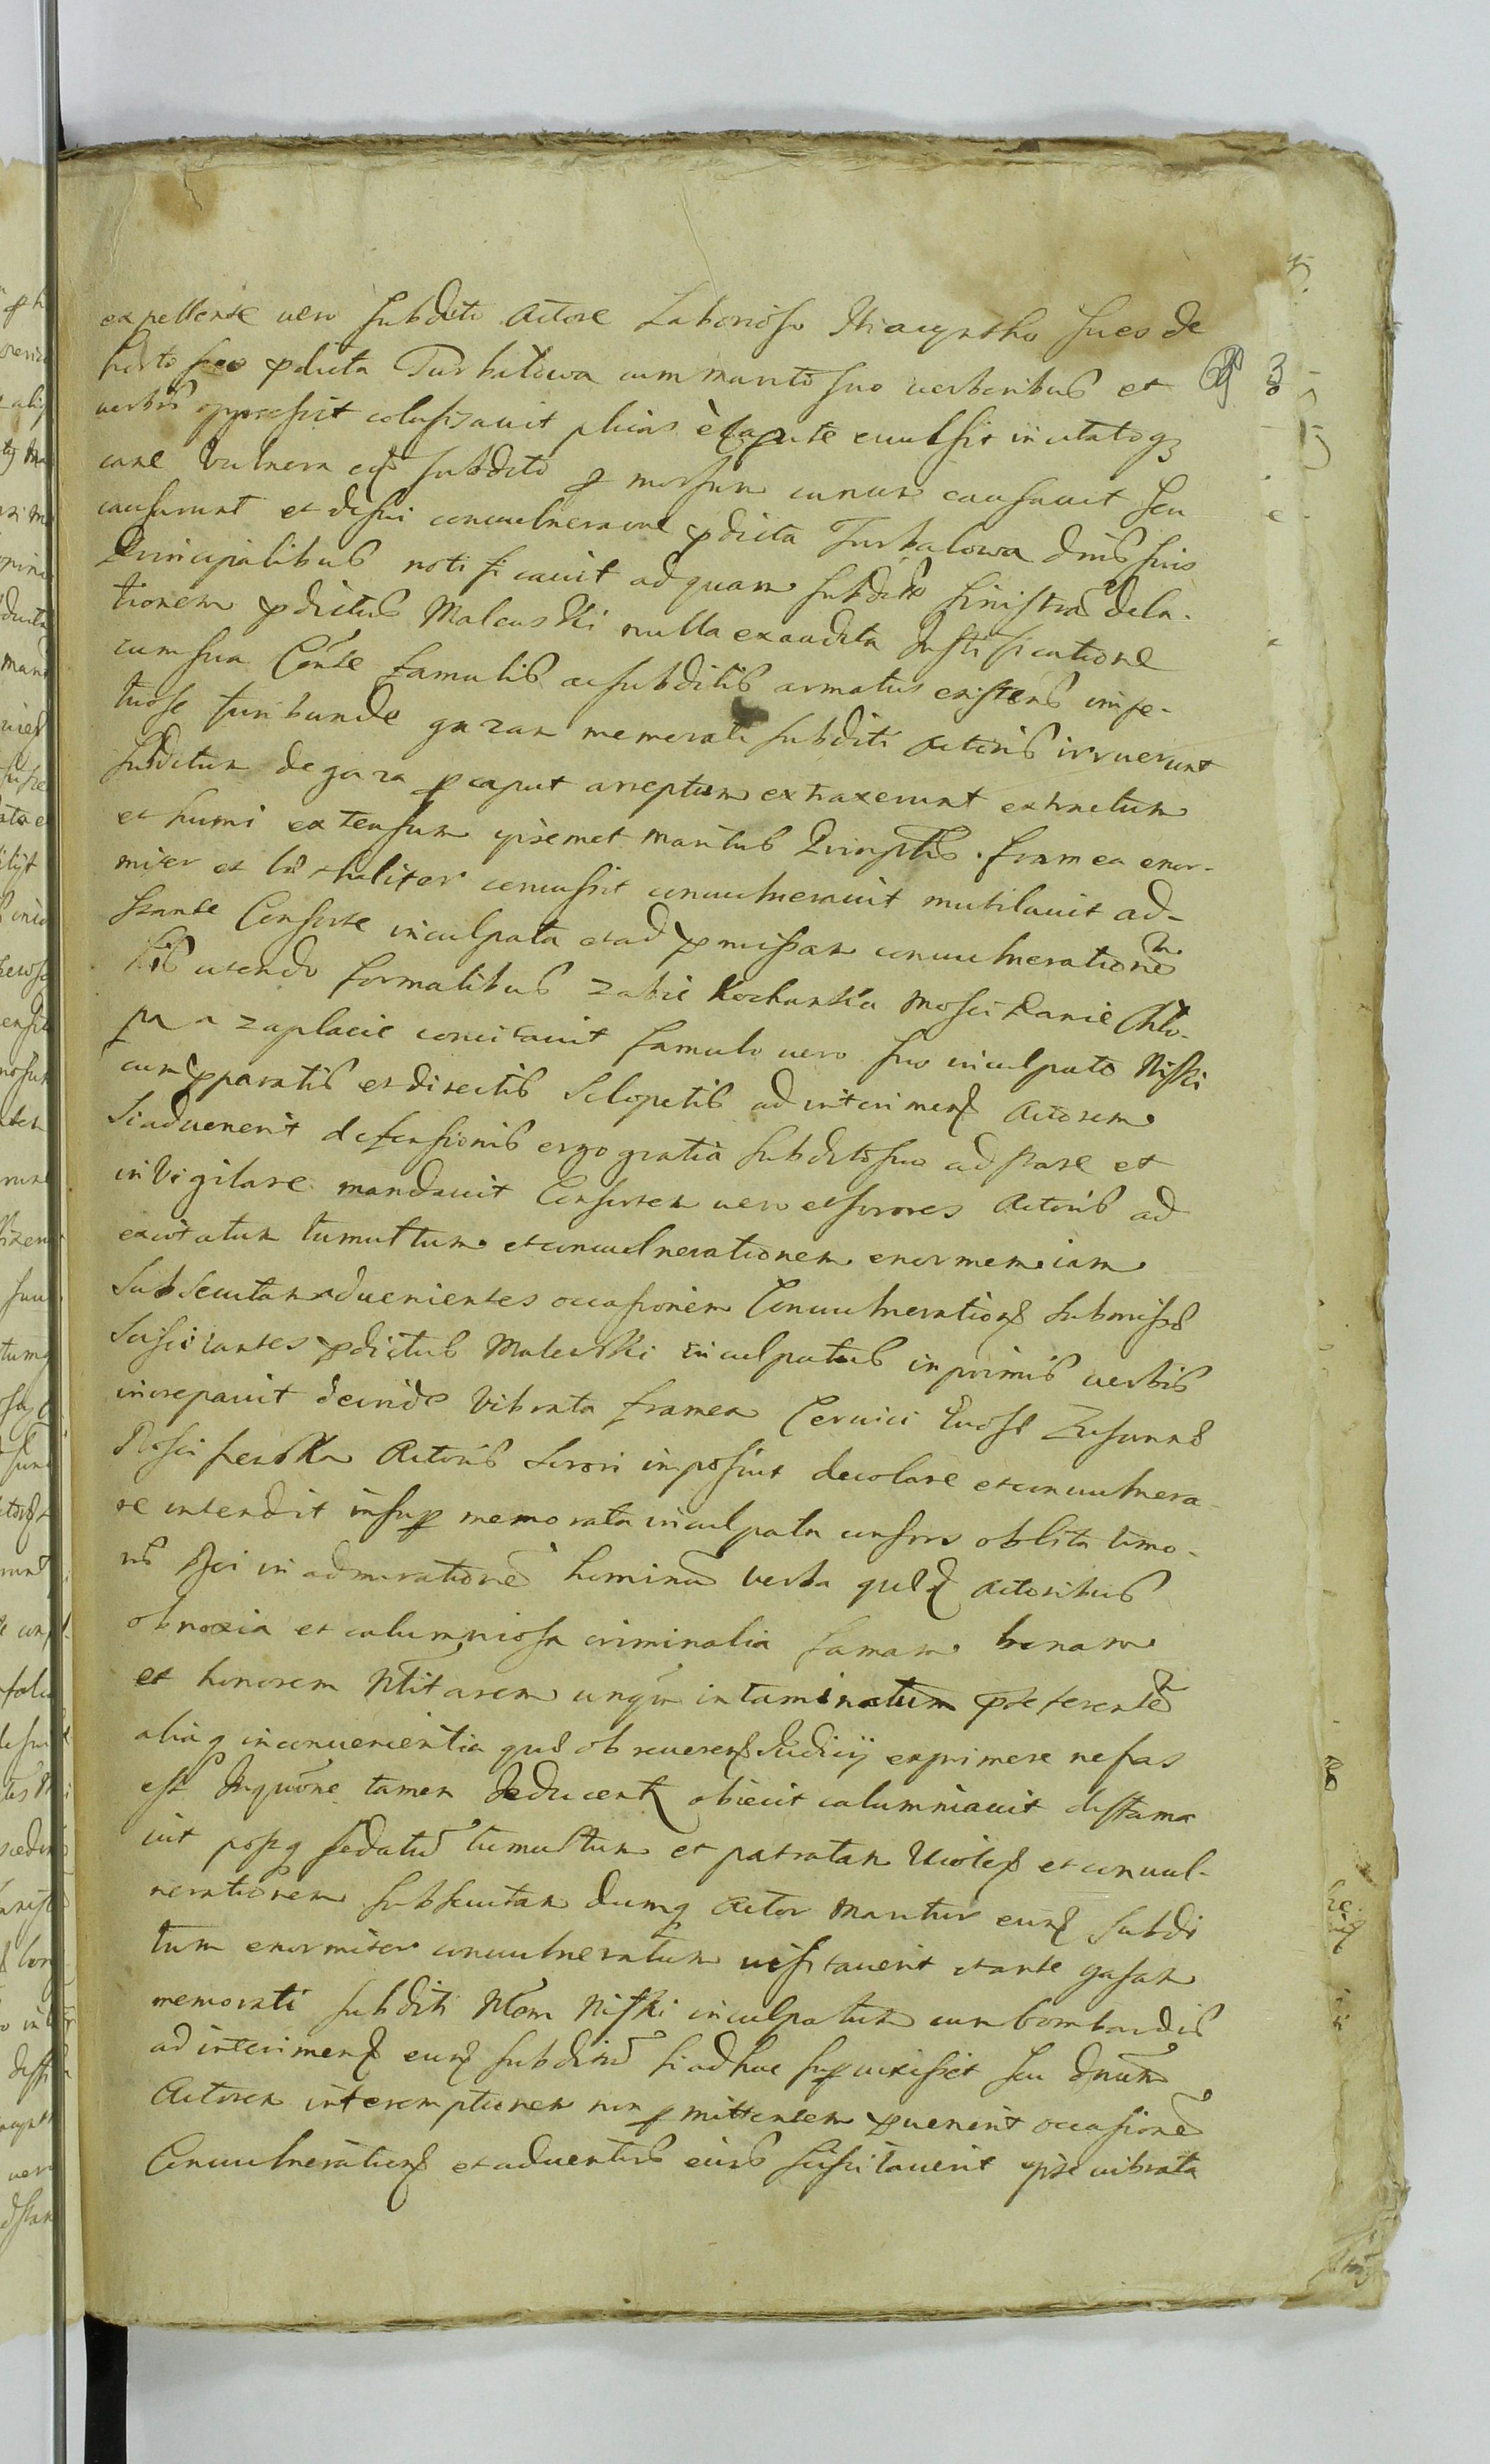 expellente vero subdito Actore Laborioso Hiacyntho sues de
horto suo pdicta Turbatowa cum marito suo verberibus et
verbis oppressit colafizavit plicas è capite evulsit incitatoq
cane vulnera eid subdito p morsum canum causavit seu
causarunt et de sui convulneraone pdicta Turbalowa dnis suis
Principalibus notificavit ad quam subditi sinistrã dela-
tionem pdictus Malewski nulla exaudita Justificatione
cum sua Conte famulis ac subditis armatus existens impe-
tuose furibunde gazam memorati subditi Actoris irruerunt
subditum de gaza p caput arreptum extraxerunt extractum
et humi extensum ipsemet maritus Prinplis framea enor-
miter et lethaliter concussit convulneravit mutilavit ad-
stante Consorte inculpata et ad pmissam convulnerationem
his utendo formalibus zabie kochanku Mosci Panie Chło-
pa a zapłacie concitavit famulo vero suo inculpato Niski
cum pparatis et directis Sclopetis ad interimend Actorem
si advenerit defensionis ergo gratia subdito suo adstare et
invigilare mandavit Consortem vero et sorores Actoris ad
excitatum tumultum et convulnerationem enormem iam
subsecutam advenientes occasionem Convulneration submisse
suscitantes pdictus Malewski inculpatus in primis verbis
increpavit deinde vibrata framea Cervici Gnose Zusanne
Actoris Sorori imposuit decolare et convulnera-
re intendit insup memorata inculpata consors oblita timo-
ris Dei in admirationẽ hominũ verba que Actoribus
obnoxia et calumniosa criminalia famam bonam
et honorem Nlitarem unqm intaminatum pseferentẽ
aliaq inconvenientia que ob reverend Judicij exprimere nefas
est Inquõne tamen deducent obiecit calumniavit diffama
vit postq sedatũ tumultum et patratam violen et convul-
nerationem subsecutam dumq Actor maritus eund subdi
tum enormiter convulneratum visitaverit et ante gazam
memorati subditi Nlem Niski inculpatum cum bombardis
ad interimend eund subditũ si adhuc supvixisset seu dnum
Actorem interemptionem non pmittentem pvenerit occasionẽ
Convulneration et adventus eius suscitaverit ipse vibrata